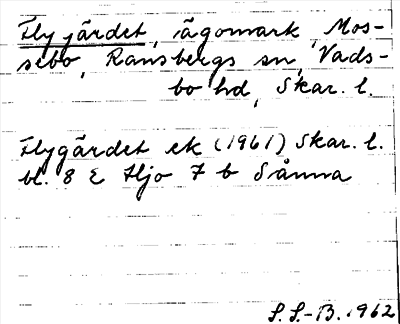 Flygärdet, ägomark, Mos-
sebo, Ransbergs sn, Vads-
bo hd, Skar. l.
Flygärdet ek (1961) Skar. l.
bl. 8 E Hjo 7 b Sånna
S. S.-B. 1962